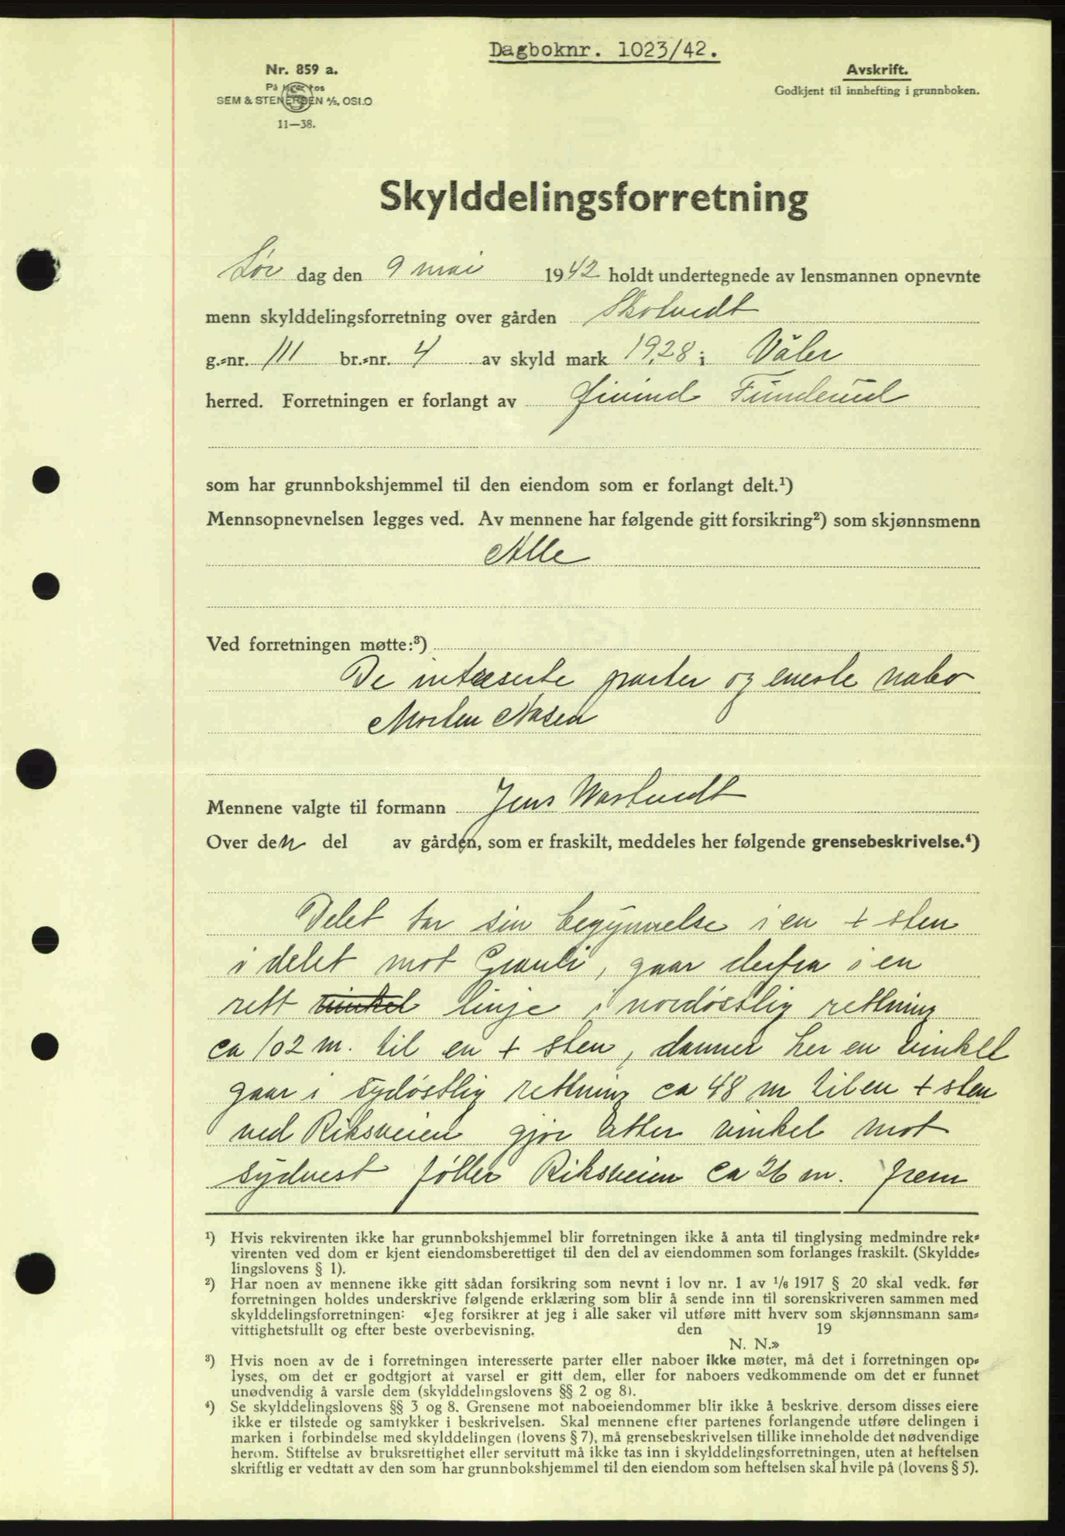 Dagboknr. 1023/42.
Nr. 859 a.
Avskrift.
På lager hos
Godkjent til innhefting i grunnboken.
SEM & STENERSEN A/S, OSLO
11—38.
Skylddelingsforretning
Lør dag den 9 mai 1942 holdt undertegnede av lensmannen opnevnte
menn skylddelingsforretning over gården Skotvedt
g.-nr. 111 br.-nr. 4 av skyld mark 19,28 i Våler
herred. Forretningen er forlangt av Øivind Funderud
som har grunnbokshjemmel til den eiendom som er forlangt delt.¹)
Mennsopnevnelsen legges ved. Av mennene har følgende gitt forsikring²) som skjønnsmenn
Alle
Ved forretningen møtte:³)
De intreserte parter og eneste nabo
Morten Aasen
Mennene valgte til formann Jens Wartvedt
Over den del av gården, som er fraskilt, meddeles her følgende grensebeskrivelse.⁴)
Delet tar sin begynnelse i en + sten
i delet mot Grauli, gaar derfra i en
rett vinkel linje i nordøstlig rettning
ca 102 m. til en + sten, danner her en vinkel
gaar i sydøstlig rettning ca 48 m til en + sten
ved Riksveien gjør atter vinkel mot
sydvest føller Riksveien ca 26 m. frem
¹) Hvis rekvirenten ikke har grunnbokshjemmel blir forretningen ikke å anta til tinglysing medmindre rek-
virenten ved dom er kjent eiendomsberettiget til den del av eiendommen som forlanges fraskilt. (Skyldde-
lingslovens § 1).
²) Har noen av mennene ikke gitt sådan forsikring som nevnt i lov nr. 1 av 1/6 1917 § 20 skal vedk. før
forretningen holdes underskrive følgende erklæring som blir å sende inn til sorenskriveren sammen med
skylddelingsforretningen: «Jeg forsikrer at jeg i alle saker vil utføre mitt hverv som skjønnsmann sam-
vittighetsfullt og efter beste overbevisning. den 19
N. N.»
³) Hvis noen av de i forretningen interesserte parter eller naboer ikke møter, må det i forretningen op-
lyses, om det er godtgjort at varsel er gitt dem, eller for naboers vedkommende om det er funnet
unødvendig å varsle dem (skylddelingslovens §§ 2 og 8).
⁴) Se skylddelingslovens §§ 3 og 8. Grensene mot naboeiendommer blir ikke å beskrive dersom disses eiere
ikke er tilstede og samtykker i beskrivelsen. Skal mennene efter partenes forlangende utføre delingen i
marken i forbindelse med skylddelingen (lovens § 7), må grensebeskrivelsen tillike inneholde det nødvendige
herom. Stiftelse av bruksrettighet eller servitutt må ikke tas inn i skylddelingsforretningen, uten at heftelsen
skriftlig er vedtatt av den som har grunnbokshjemmel til den eiendom som heftelsen skal hvile på (lovens § 5).